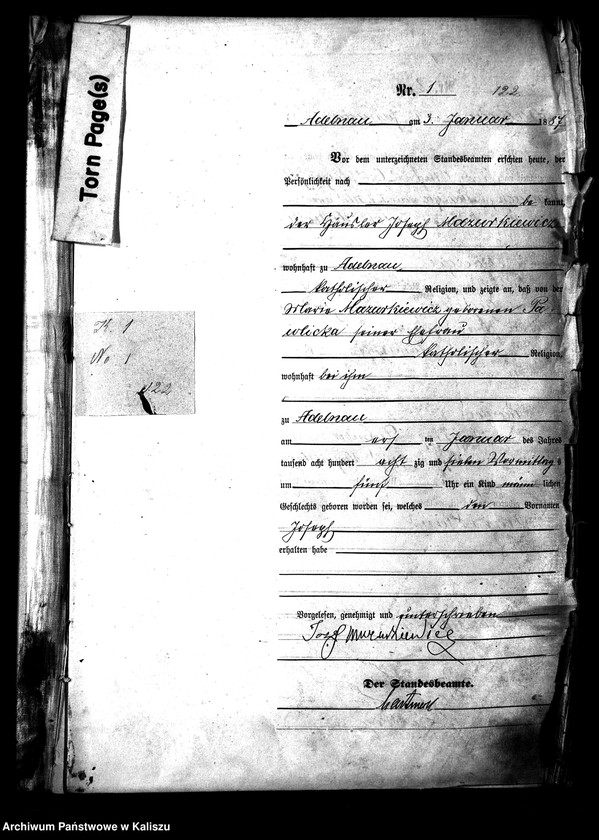 Torn Page(s)
K. 1
No 1
122
A.
Nr. 1 122
Adelnau am 3. Januar 1887
Vor dem unterzeichneten Standesbeamten erschien heute, der
Persönlichkeit nach
be kannt,
der Häusler Joseph Mazurkiewicz
wohnhaft zu Adelnau
katholischer Religion, und zeigte an, daß von der
Marie Mazurkiewicz geborenen Pa-
wlicka seiner Ehefrau
katholischer Religion,
wohnhaft bei ihm
zu Adelnau
am ersten Januar des Jahres
tausend acht hundert acht zig und sieben Vormittags
um fünf Uhr ein Kind männ lichen
Geschlechts geboren worden sei, welches den Vornamen
Joseph
erhalten habe
Vorgelesen, genehmigt und unterschrieben
Der Standesbeamte.
Archiwum Państwowe w Kaliszu